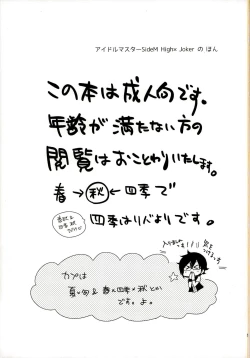 アイドルマスターSideM High×Joker の ほん
この本は成人向です。
年齢が満たない方の
閲覧はおことわりいたします。
春→秋←四季で
四季はリバよりです。
カプは
夏×旬&春×四季×秋とか
です。よ。